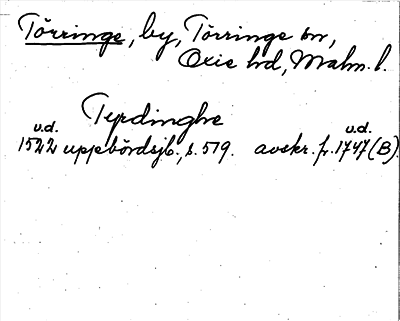 Törringe, by, Törringe sn,
Oxie hd, Malm. l.
Tyrdinghe
u.d. u.d.
1522 uppbördsjb., s. 519. avskr. fr. 1747 (B).